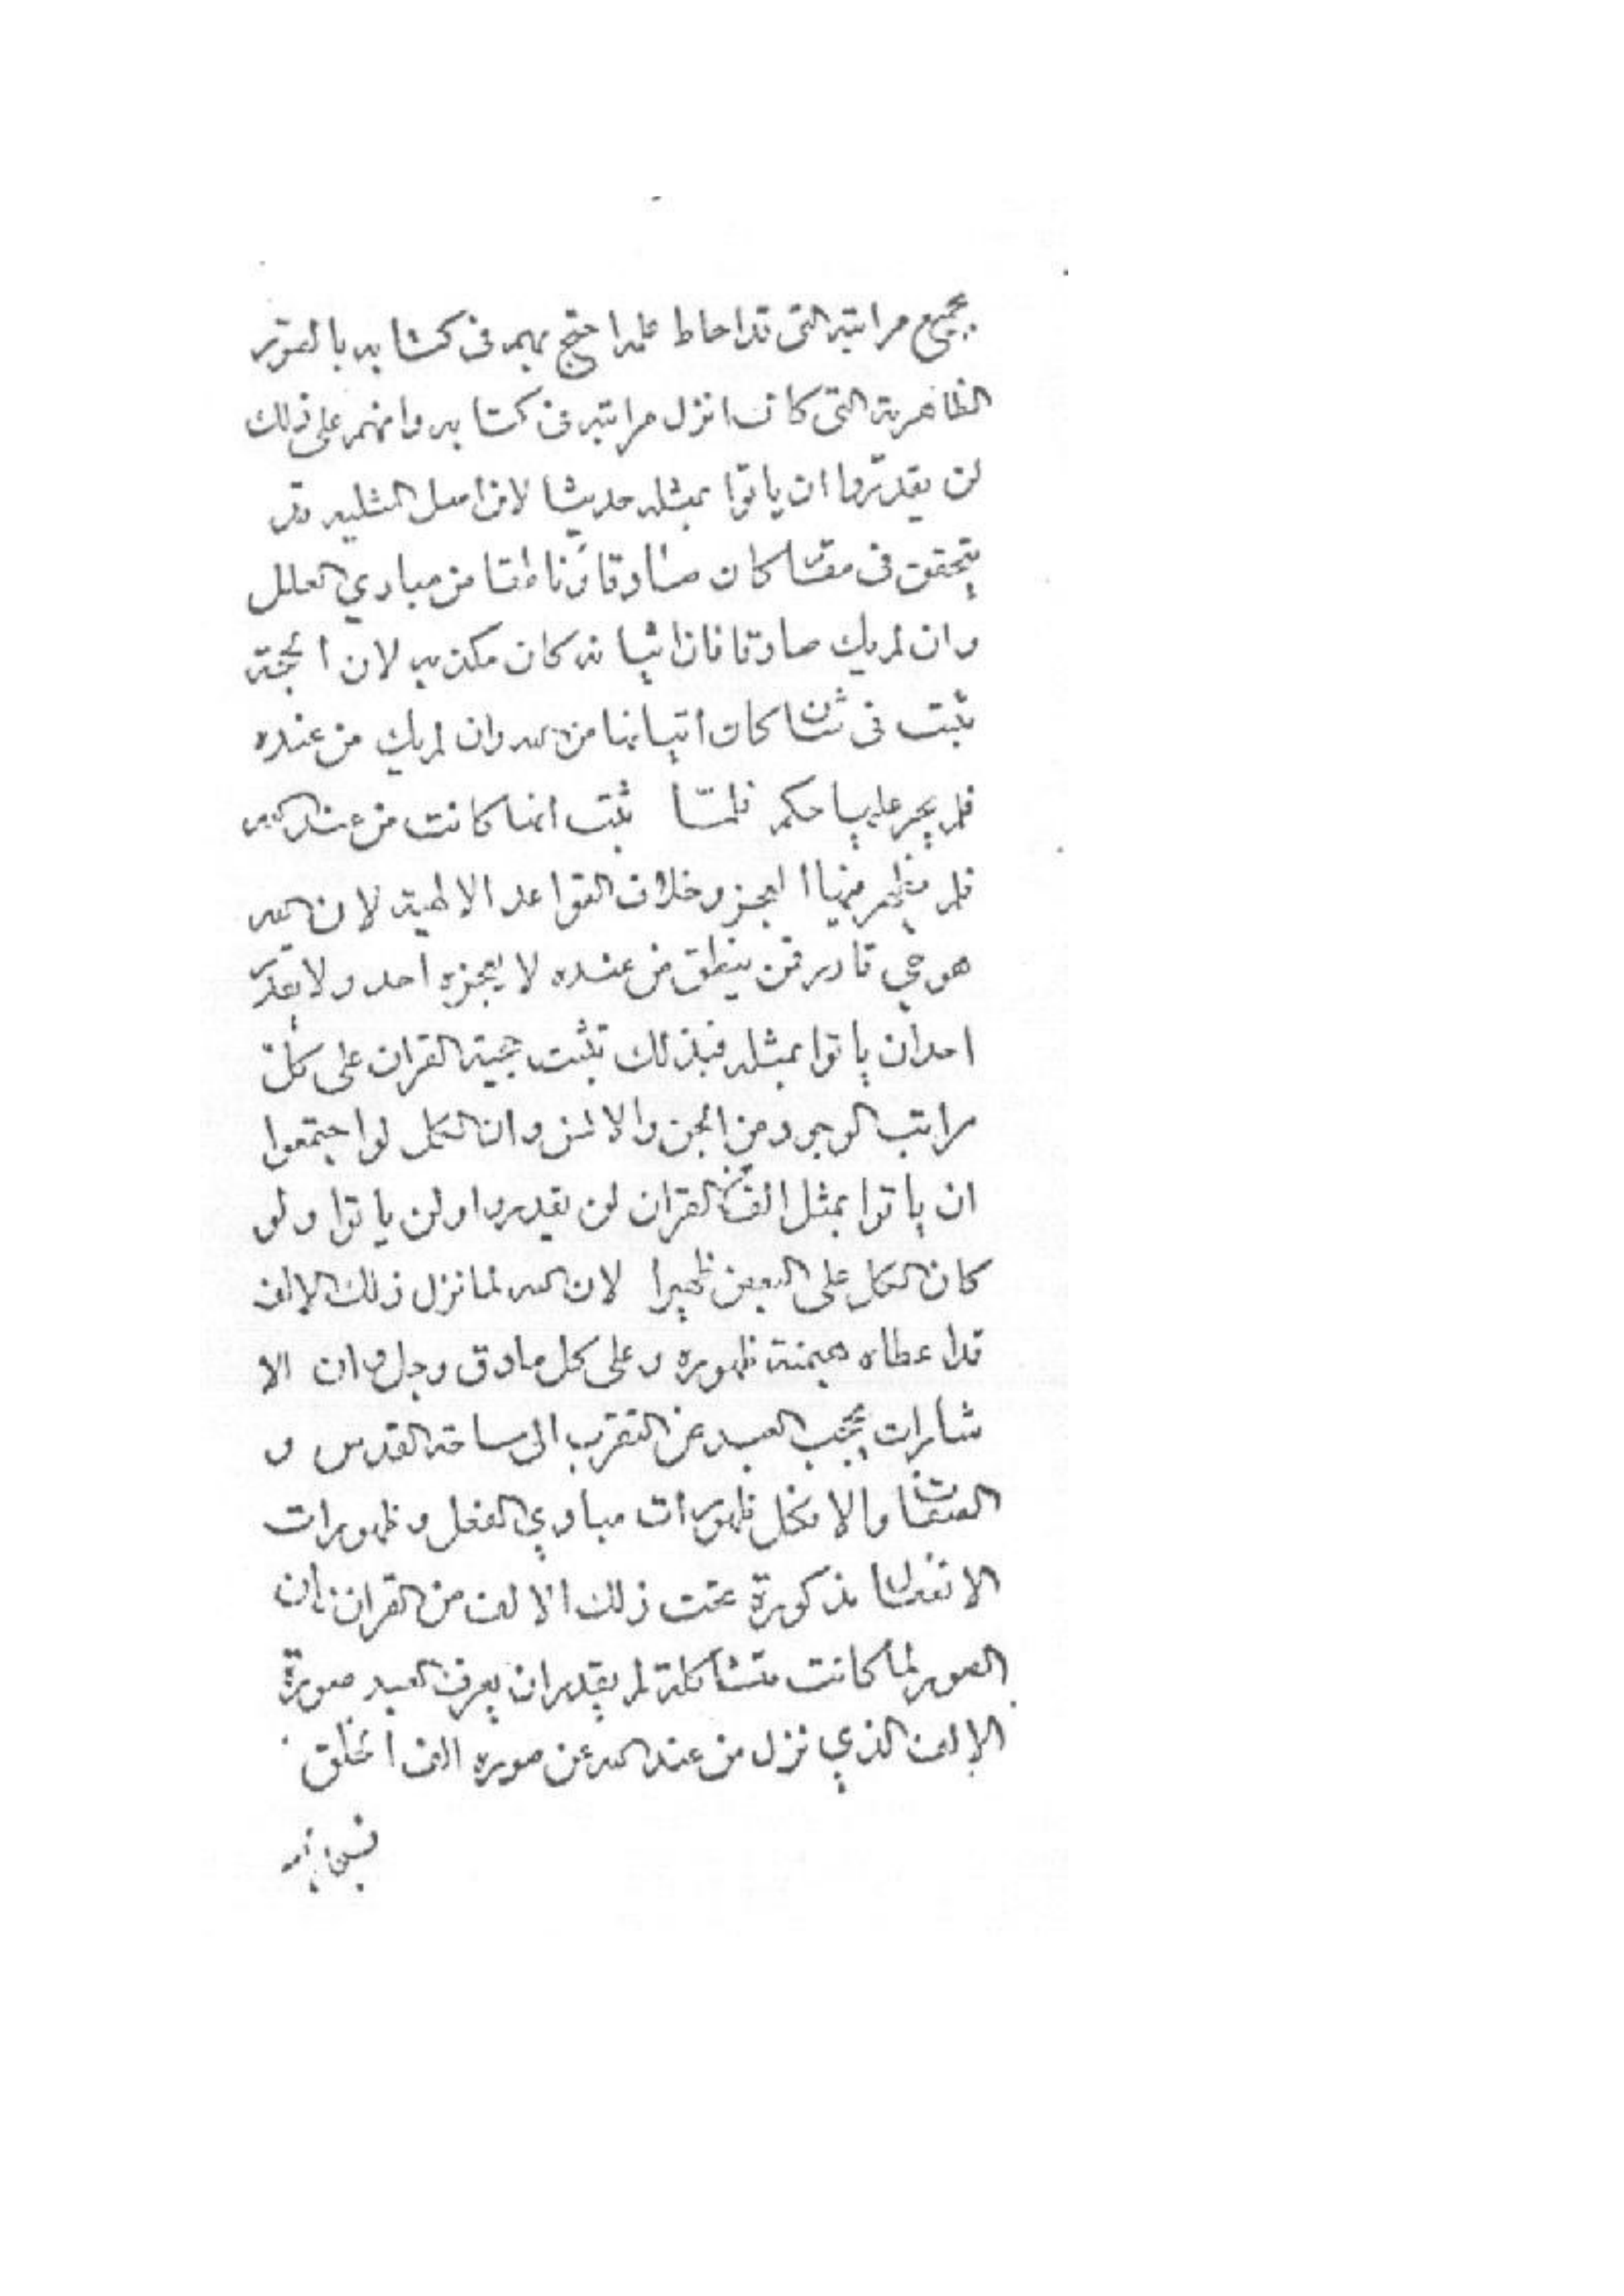 بجميع مراتبه التى قد احاط علمه احتج بهم فى كتابه بالصور
الظاهرية التى كانت انزل مراتبه فى كتابه وانهم على ذلك
لن يقدروا ان ياتوا بمثله حديثا لان اصل المثلية قد
يتحقق فى مقام كان صادقا وناطقا من مبادي العلل
وان لم يك صادقا فاذا اتيانه كان مكذبه لان الحجة
يثبت فى شان كان اتيانها من الله وان لم يك من عنده
فلم يجر عليها حكم فلما ثبت انها كانت من عند الله
فلم يظهر منها العجز وخلاف القواعد الالهية لان الله
هو حي قادر فمن ينطق من عنده لا يعجزه احد ولا يقدر
احد ان ياتوا بمثله فبذلك تثبت حجية القران على كل
مراتب الوجود من الجن والانس وان الكل لو اجتمعوا
ان ياتوا بمثل الف من القران لن يقدروا ولن ياتوا ولو
كان الكل على البعض ظهيرا لان الله لما نزل ذلك الالف
قد اعطاه هيمنة ظهوره وعلى كل ما دق وجل وان الا
شارات يحجب العبد عن التقرب الى ساحة القدس و
والا فكل ظهورات مبادي الفعل وظهورات
الانفعال مذكورة تحت ذلك الالف من القران فان
الصور لما كانت متشاكلة لم يقدر ان يعرف العبد صورة
الالف الذي نزل من عند الله عن صوره الف الخلق